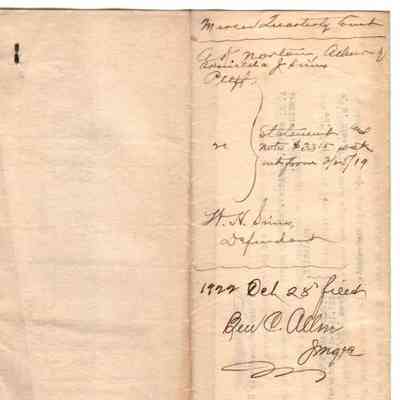 Mercer Quarterly Court
G. N. Norton, Admr of
Armilda J. Sims
Plff.
vs
Statement and
note $33.15 with
int from 2/25/19
W. H. Sims,
Defendant
1922 Oct 28 filed
Ben C. Allin